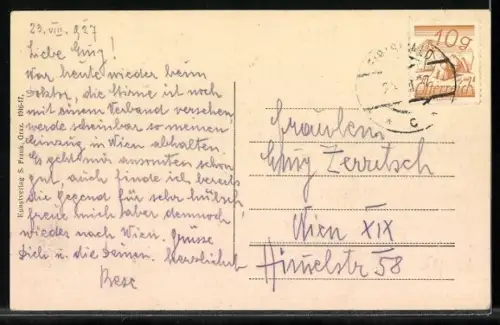 29. VIII. 927
Liebe
War heute wieder beim
Doktor, die Stirne ist noch
mit einem Verband versehen,
werde scheinbar so meinen
Einzug in Wien abhalten.
Es geht mir ansonsten schon
gut auch finde ich bereits
die Gegend für sehr hübsch,
freue mich aber dennoch
wieder nach Wien. Grüsse
Dich u. die Deinen. Herzlichst
Kunstverlag S. Frank, Graz.
10g
Fräulein
Wien XIX
Himmelstr 58